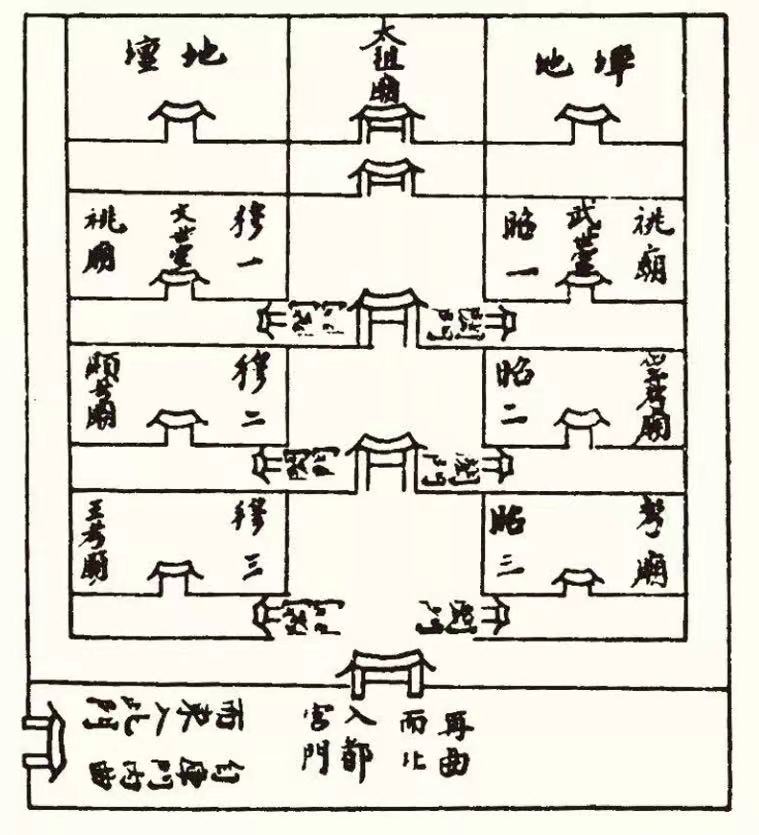 墠地
太祖廟
地壇
祧廟
武世室
昭一
穆一
文世室
祧廟
皇考廟
昭二
穆二
顯考廟
考廟
昭三
穆三
王考廟
再曲
而北
入都
宮門
自庫門內曲
而東入此門